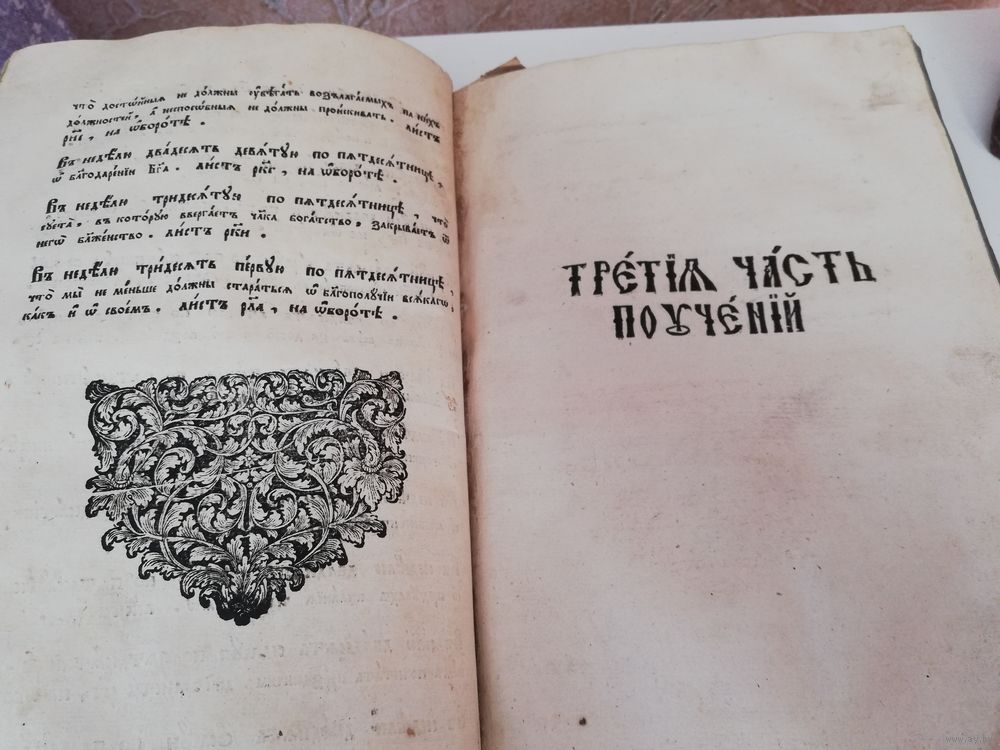 что̀ досто́йныя не до́лжны ᲂу҆бѣга́ть возлага́емыхъ на ни́хъ
до́лжностей, а҆ неспосо́бныя не до́лжны прои́скивать. ли́стъ
на ѡ҆боро́тѣ.
Въ недѣ́лю два́десѧть девѧ́тую по пѧтдесѧ́тницѣ,
ѡ҆ благодаре́нїи бг҃а. ли́стъ рк҃г, на ѡ҆боро́тѣ.
Въ недѣ́лю тридесѧ́тую по пѧтдесѧ́тницѣ, что̀
сꙋета̀, въ кото́рую вверга́етъ чл҃ка бога́тство, закрыва́етъ ѿ
негѡ̀ бл҃же́нство. ли́стъ рк҃и.
Въ недѣ́лю три́десѧть пе́рвую по пѧтдесѧ́тницѣ,
что̀ мы̀ не ме́ньше должны̀ стара́ться ѡ҆ благополꙋ́чїи всѧ́кагѡ,
ка́къ и҆ ѡ҆ свое́мъ. ли́стъ рл҃а, на ѡ҆боро́тѣ.
ТРЕ́ТЇѦ ЧА́СТЬ
ПОꙊЧЕ́НЇЙ